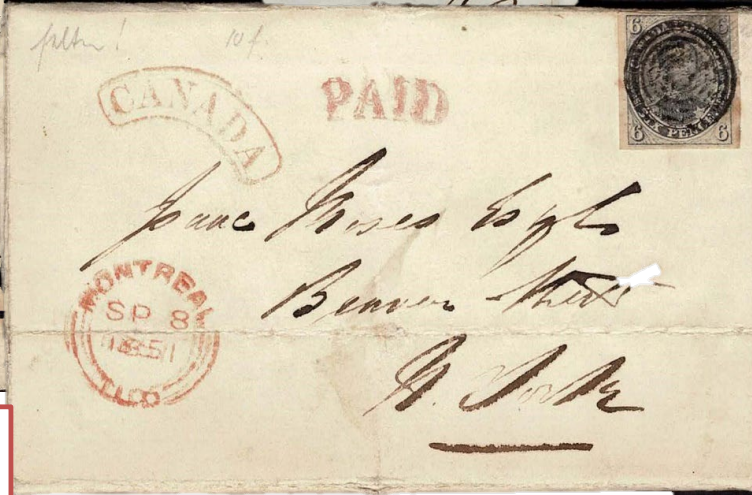 10 f.
CANADA
PAID
6 6
SIX PENCE
6 6
Isaac Moses Esq
Beaver Street
N. York
MONTREAL
SP 8
1851
L.C.